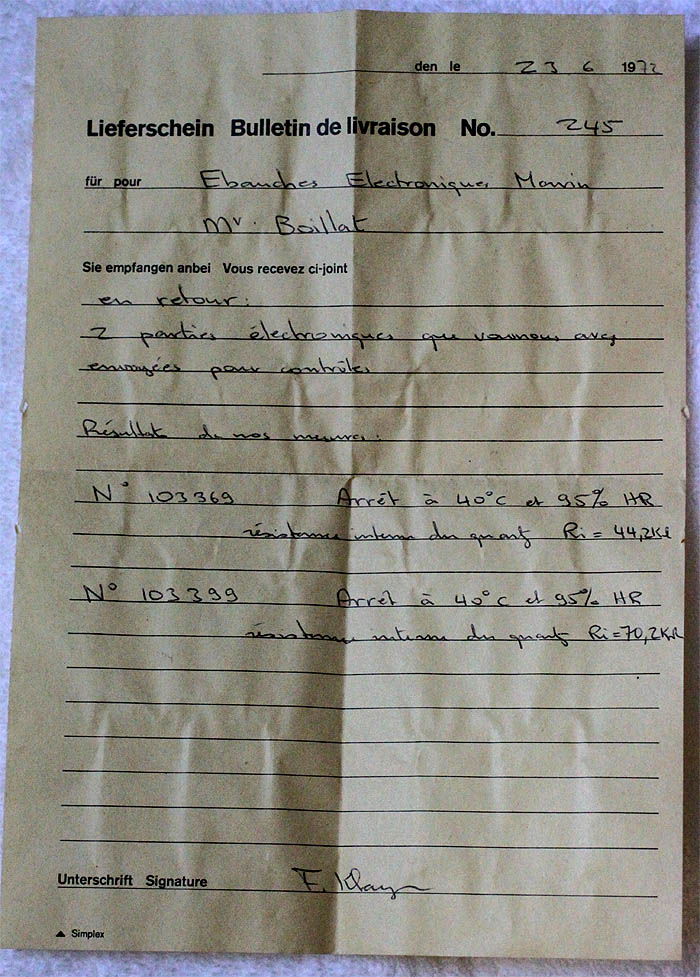 den le 23 6 1972
Lieferschein Bulletin de livraison No. 245
für pour Ebauches Electroniques Marin
Mr. Boillat
Sie empfangen anbei Vous recevez ci-joint
en retour:
2 parties électroniques que vous nous avez
envoyées pour contrôles
Résultats de nos mesures:
N° 103369 Arrêt à 40°C et 95% HR
résistance interne du quartz Ri = 44,2KΩ
N° 103399 Arrêt à 40°C et 95% HR
résistance interne du quartz Ri = 70,2KΩ
Unterschrift Signature F.
Simplex